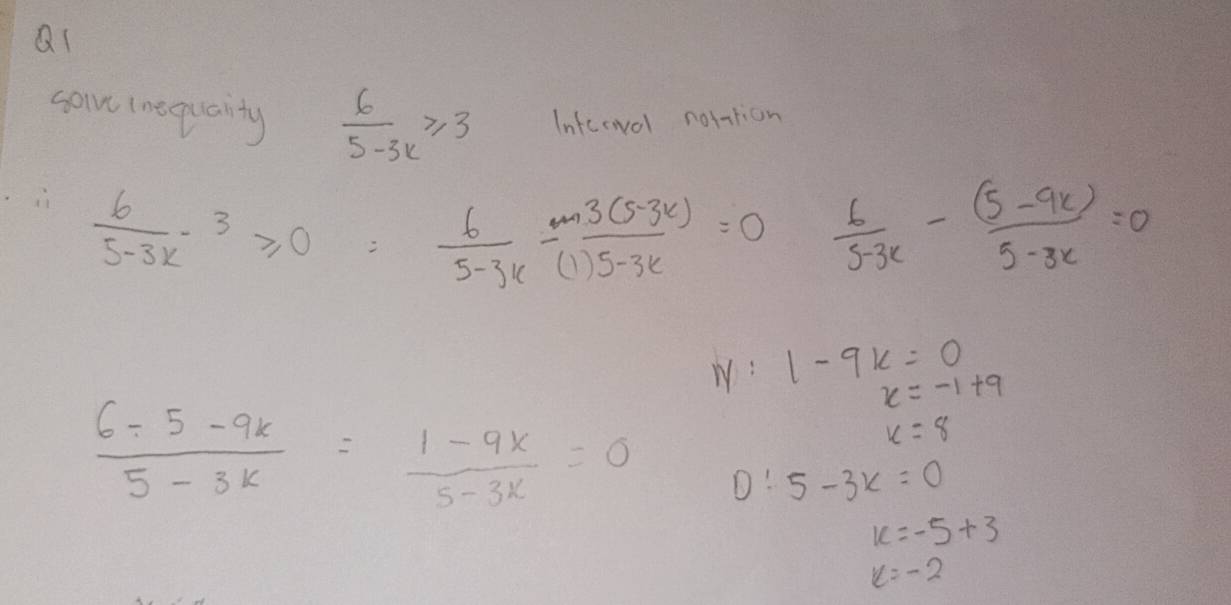 Q1
Solve inequality 6/(5-3x) ⩾ 3 Interval notation
ii 6/(5-3x) - 3 ⩾ 0 = 6/(5-3x) - 3(5-3x)/(1)5-3x = 0 6/(5-3x) - (5-9x)/(5-3x) = 0
N: 1-9x = 0
x = -1+9
x = 8
(6-5-9x)/(5-3x) = (1-9x)/(5-3x) = 0
D: 5-3x = 0
x = -5+3
x = -2